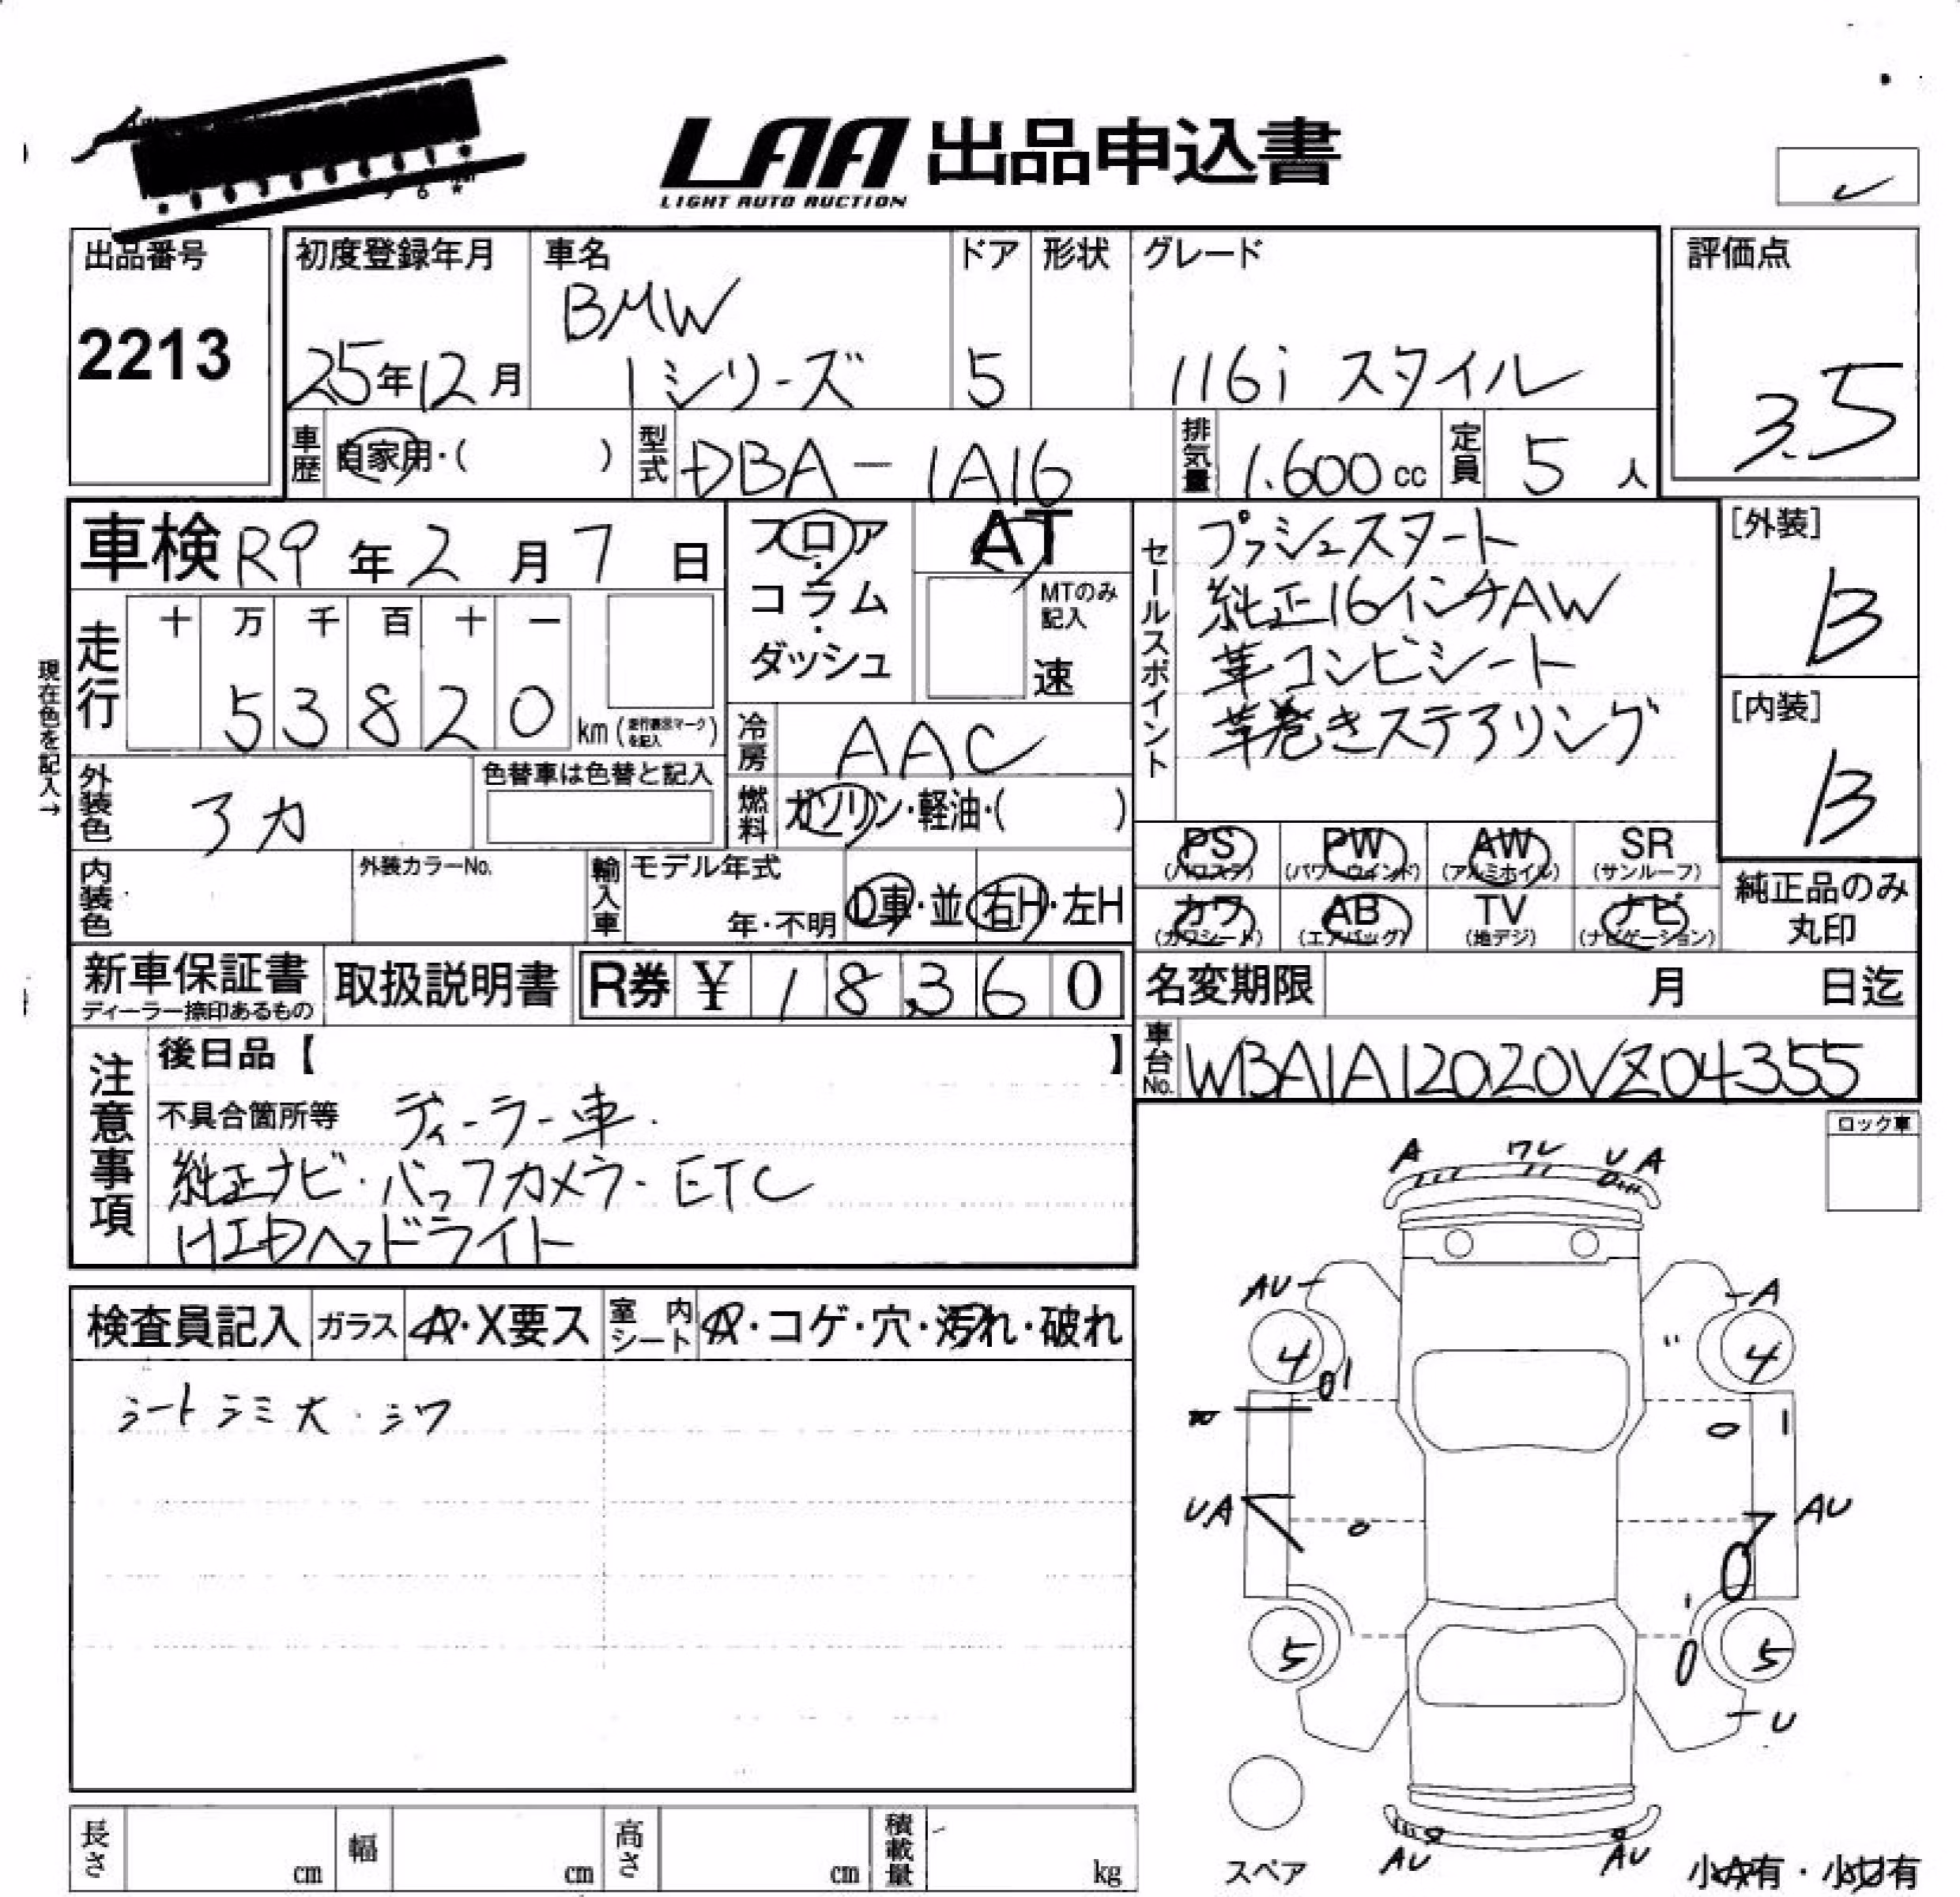 LAA 出品申込書
LIGHT AUTO AUCTION
出品番号
2213
初度登録年月
25年12月
車名
BMW
1シリーズ
ドア
5
形状
グレード
116i スタイル
評価点
3.5
車歴
自家用・( )
型式
DBA-1A16
排気量
1.600cc
定員
5人
車検 R9年2月7日
フロア・コラム・ダッシュ
AT
MTのみ記入
速
セールスポイント
プッシュスタート
純正16インチAW
革コンビシート
革巻きステアリング
[外装]
B
[内装]
B
現在色を記入→
走行
十 万 千 百 十 一
53820
km (走行表示マークを記入)
冷房
AAC
外装色
アカ
色替車は色替と記入
燃料
ガソリン・軽油・( )
PS
(パワステ)
PW
(パワーウインド)
AW
(アルミホイル)
SR
(サンルーフ)
カワ
(カワシート)
AB
(エアバッグ)
TV
(地デジ)
ナビ
(ナビゲーション)
純正品のみ
丸印
内装色
外装カラーNo.
輸入車
モデル年式
年・不明
D車・並
右H・左H
新車保証書
ディーラー捺印あるもの
取扱説明書
R券 ¥ 18,360
名変期限 月 日迄
車台No.
WBA1A12020VZ04355
注意事項
後日品【 】
不具合箇所等 ディーラー車.
純正ナビ・バックカメラ・ETC
HIDヘッドライト
ロック車
A ワレ U A
AU A
4 4
UA AU
5 5
U
AU AU
スペア
小A有・小U有
検査員記入
ガラス
A・X要ス
室内シート
A・コゲ・穴・汚れ・破れ
シートシミ大・シワ
長さ cm
幅 cm
高さ cm
積載量 kg